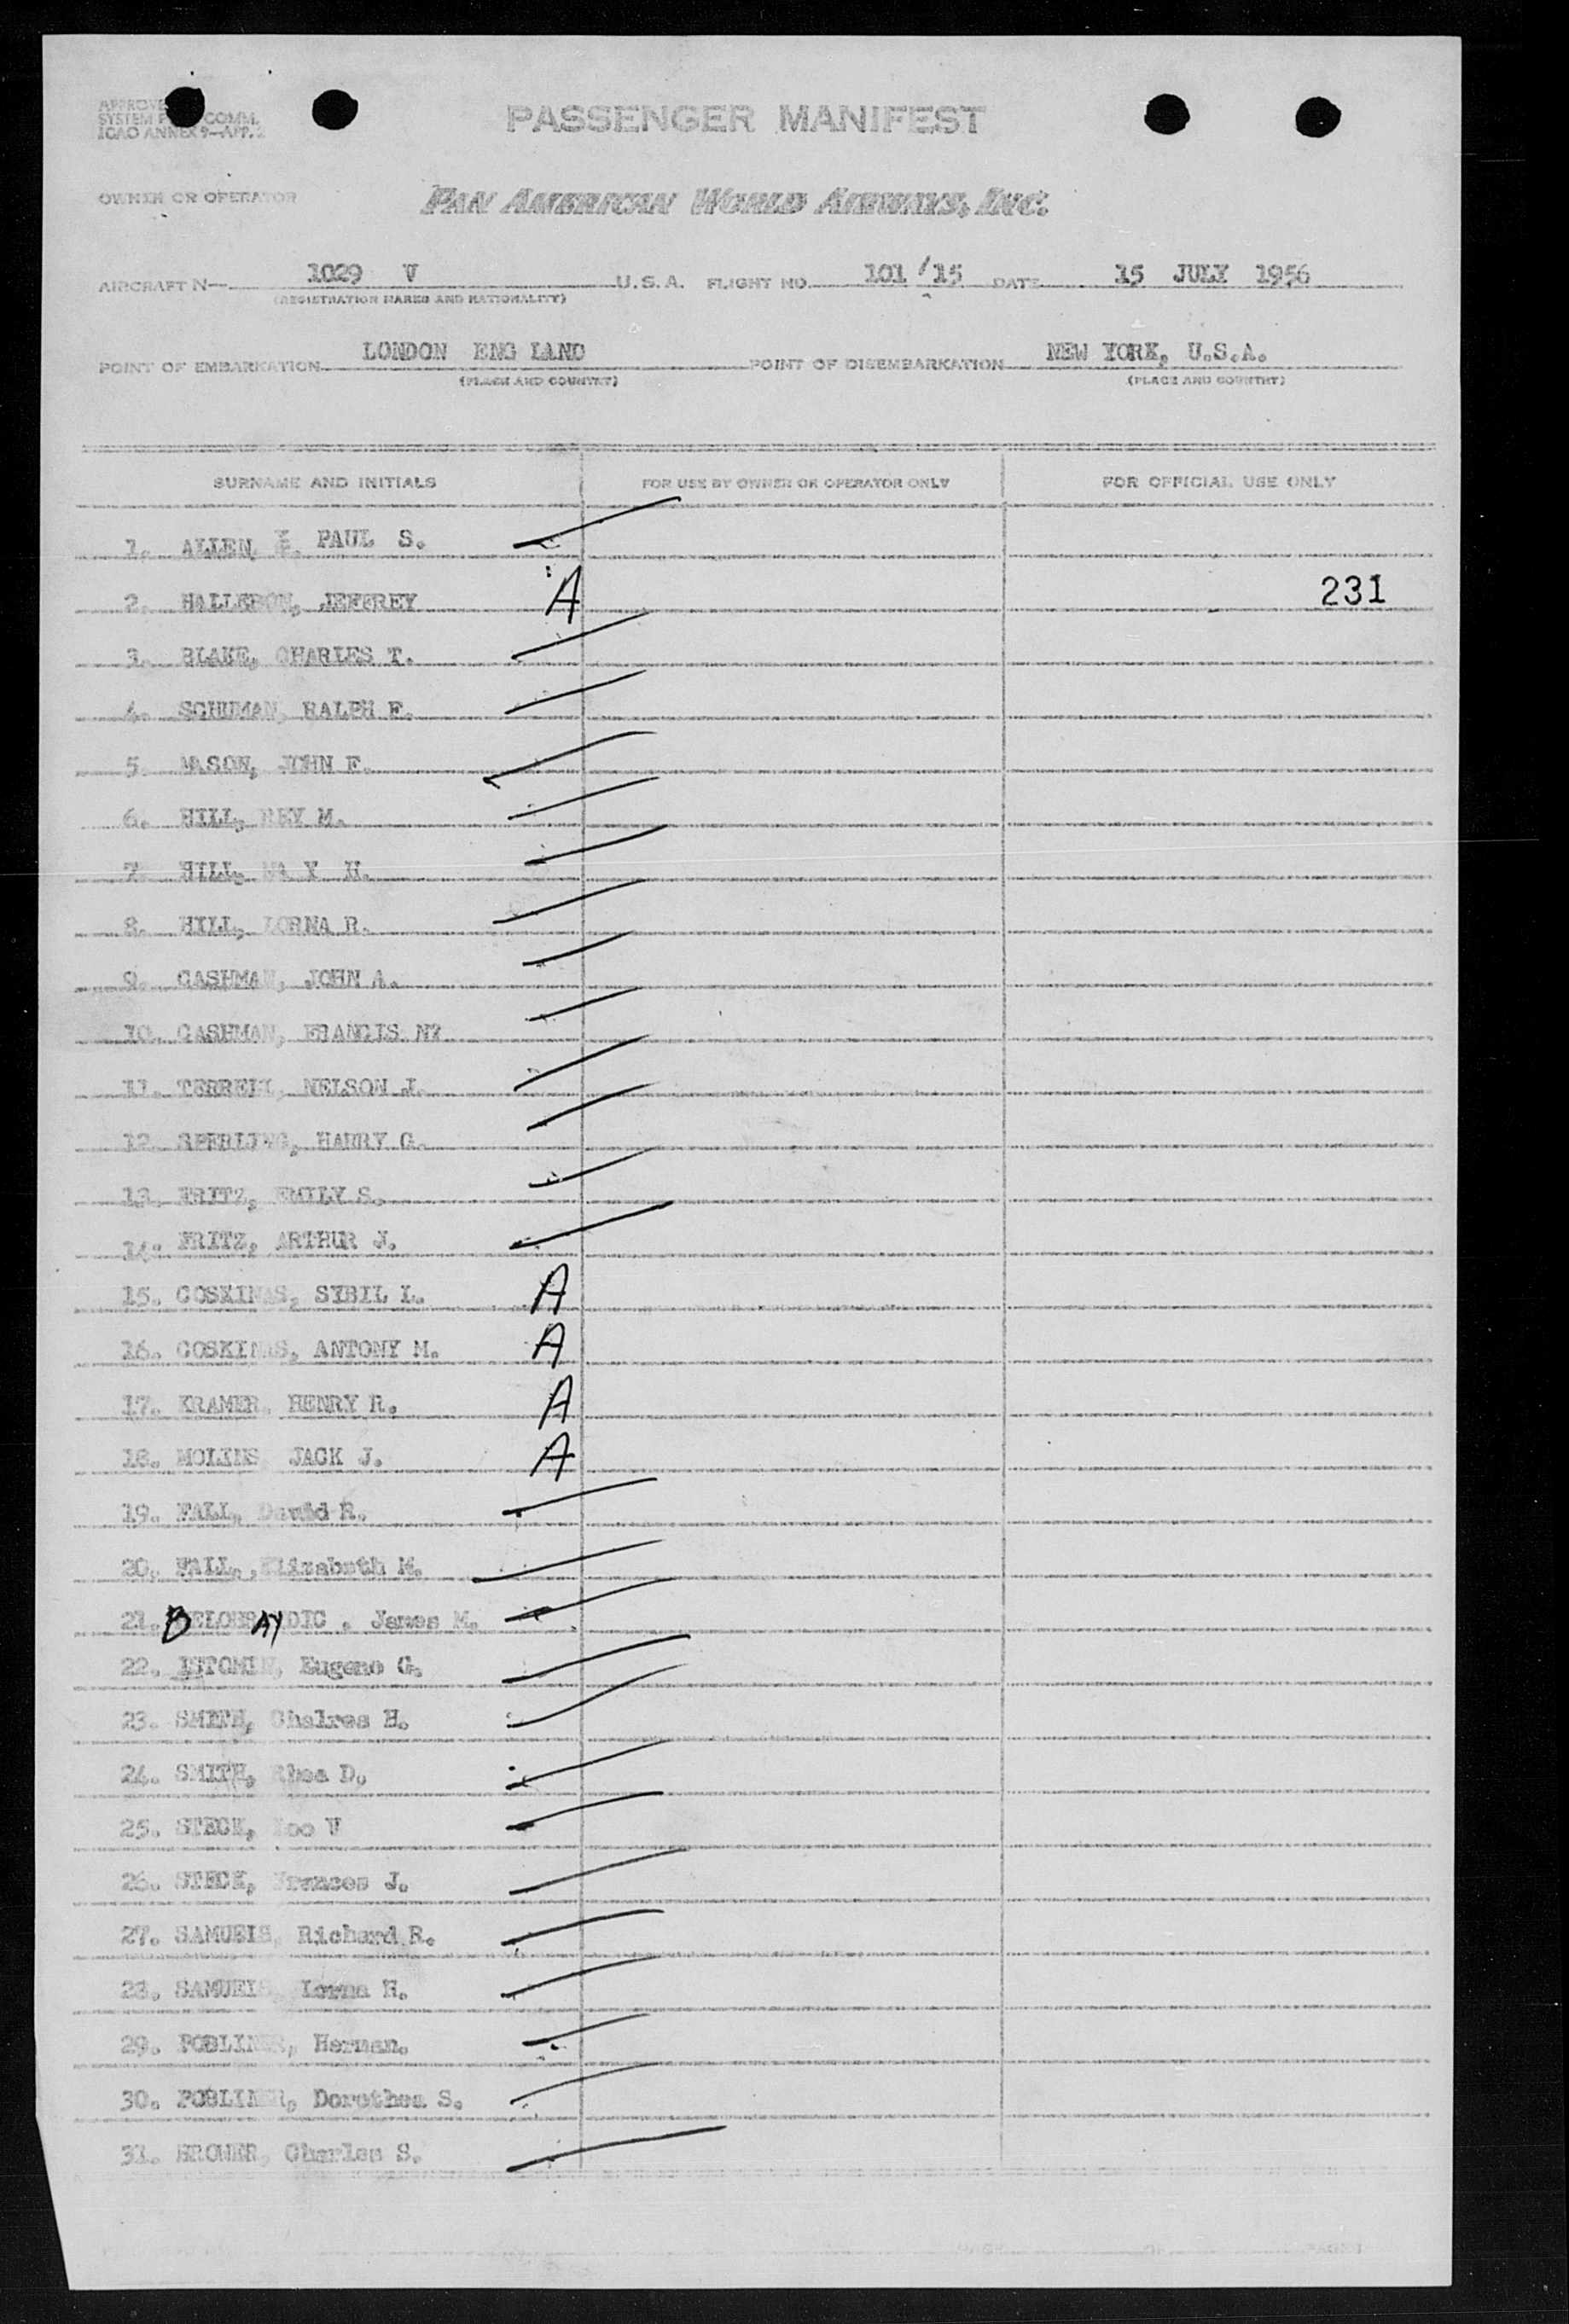 PASSENGER MANIFEST
SYSTEM COMM.
ICAO ANNEX 9—APP. 2
OWNER OR OPERATOR PAN AMERICAN WORLD AIRWAYS, INC.
AIRCRAFT N— 1029 V U.S.A. FLIGHT NO. 101 / 15 DATE 15 JULY 1956
(REGISTRATION MARKS AND NATIONALITY)
POINT OF EMBARKATION LONDON ENG LAND POINT OF DISEMBARKATION NEW YORK, U.S.A.
(PLACE AND COUNTRY) (PLACE AND COUNTRY)
SURNAME AND INITIALS FOR USE BY OWNER OR OPERATOR ONLY FOR OFFICIAL USE ONLY
1. ALLEN, PAUL S.
2. JEFFREY A 231
3. BLAKE, CHARLES T.
4. SCHUMAN, RALPH F.
5. MASON, JOHN F.
6. HILL, REY M.
7. HILL, H.
8. HILL, LORNA R.
9. CASHMAN, JOHN A.
10. CASHMAN, FRANCIS
11. TERRELL, NELSON J.
12. SPERLING, HARRY G.
13. FRITZ, EMILY S.
14. FRITZ, ARTHUR J.
15. GOSKINAS, SYBIL L. A
16. GOSKINAS, ANTONY M. A
17. KRAMER, HENRY R. A
18. MOLINS, JACK J. A
19. FALL, David R.
20. FALL, Elizabeth M.
21. James M.
22. ISTOMIN, Eugene G.
23. SMITH, Chalres H.
24. SMITH, Rhea D.
25. STECK, V
26. STECK, Frances J.
27. SAMUELS, Richard R.
28. SAMUELS, Lorna H.
29. POBLINER, Herman.
30. POBLINER, Dorothea S.
31. BROWER, Charles S.